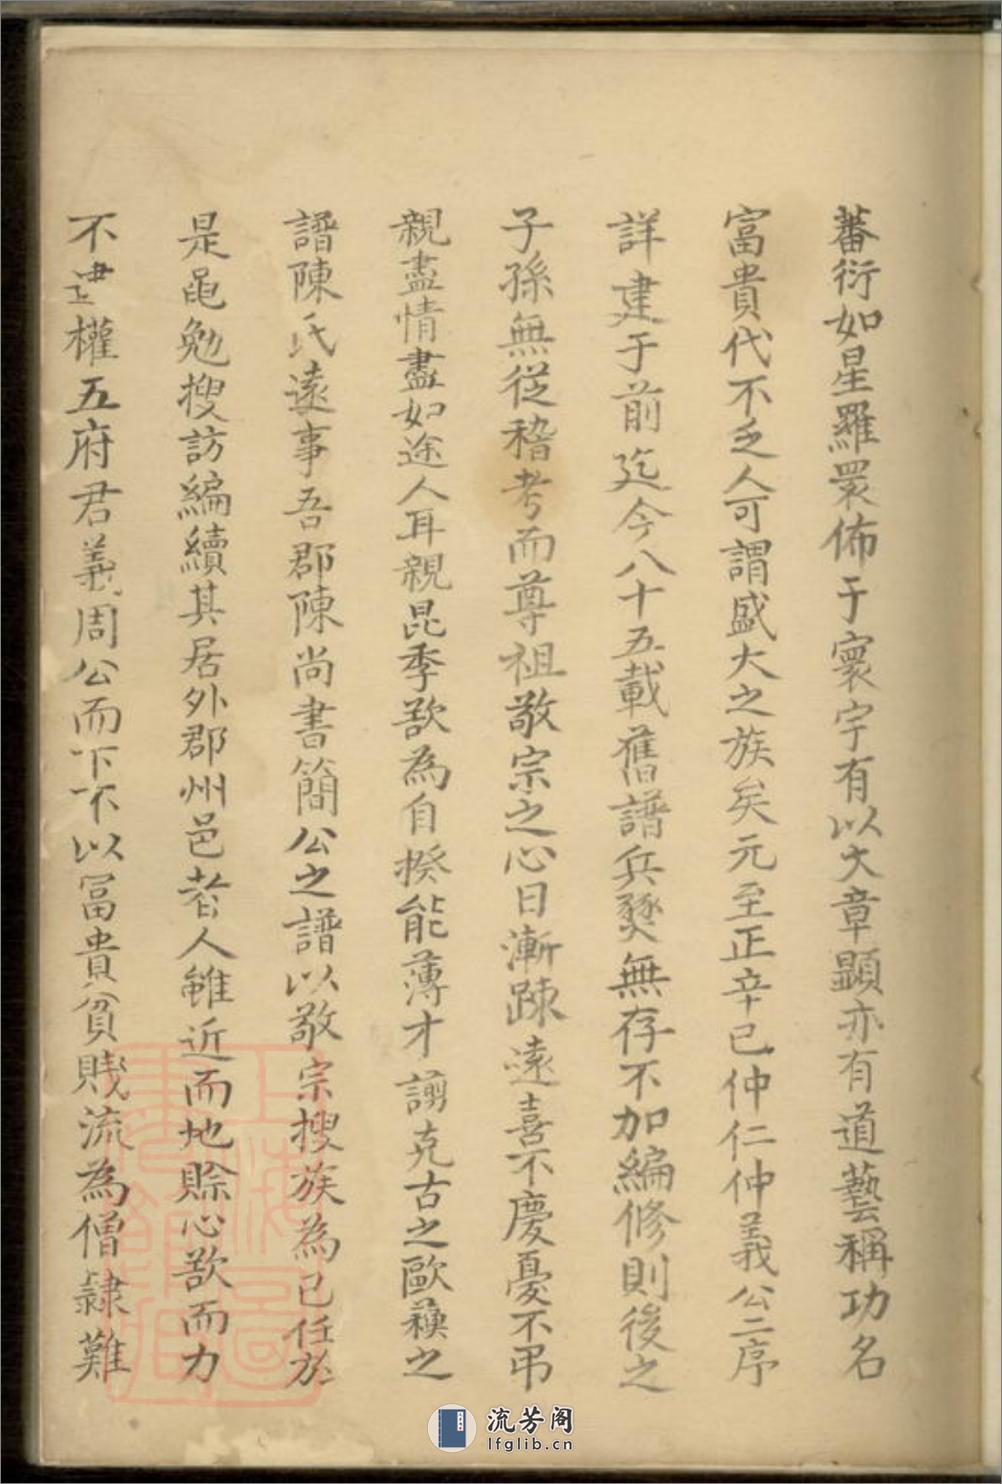 蕃衍如星羅眾佈于寰宇有以文章顯亦有道藝稱功名
富貴代不乏人可謂盛大之族矣元至正辛巳仲仁仲義公二序
詳建于前迄今八十五載舊譜兵燹無存不加編修則後之
子孫無從稽考而尊祖敬宗之心日漸踈遠喜不慶憂不弔
親盡情盡如途人耳親昆季欲為自揆能薄才謭克古之歐蘓之
譜陳氏遠事吾郡陳尚書簡公之譜以敬宗搜族為己任於
是黾勉搜訪編續其居外郡州邑者人雖近而地賖心欲而力
不逮權五府君義周公而下不以冨貴貧賤流為僧隷難
上海圖書館藏
流芳阁
lfglib.cn